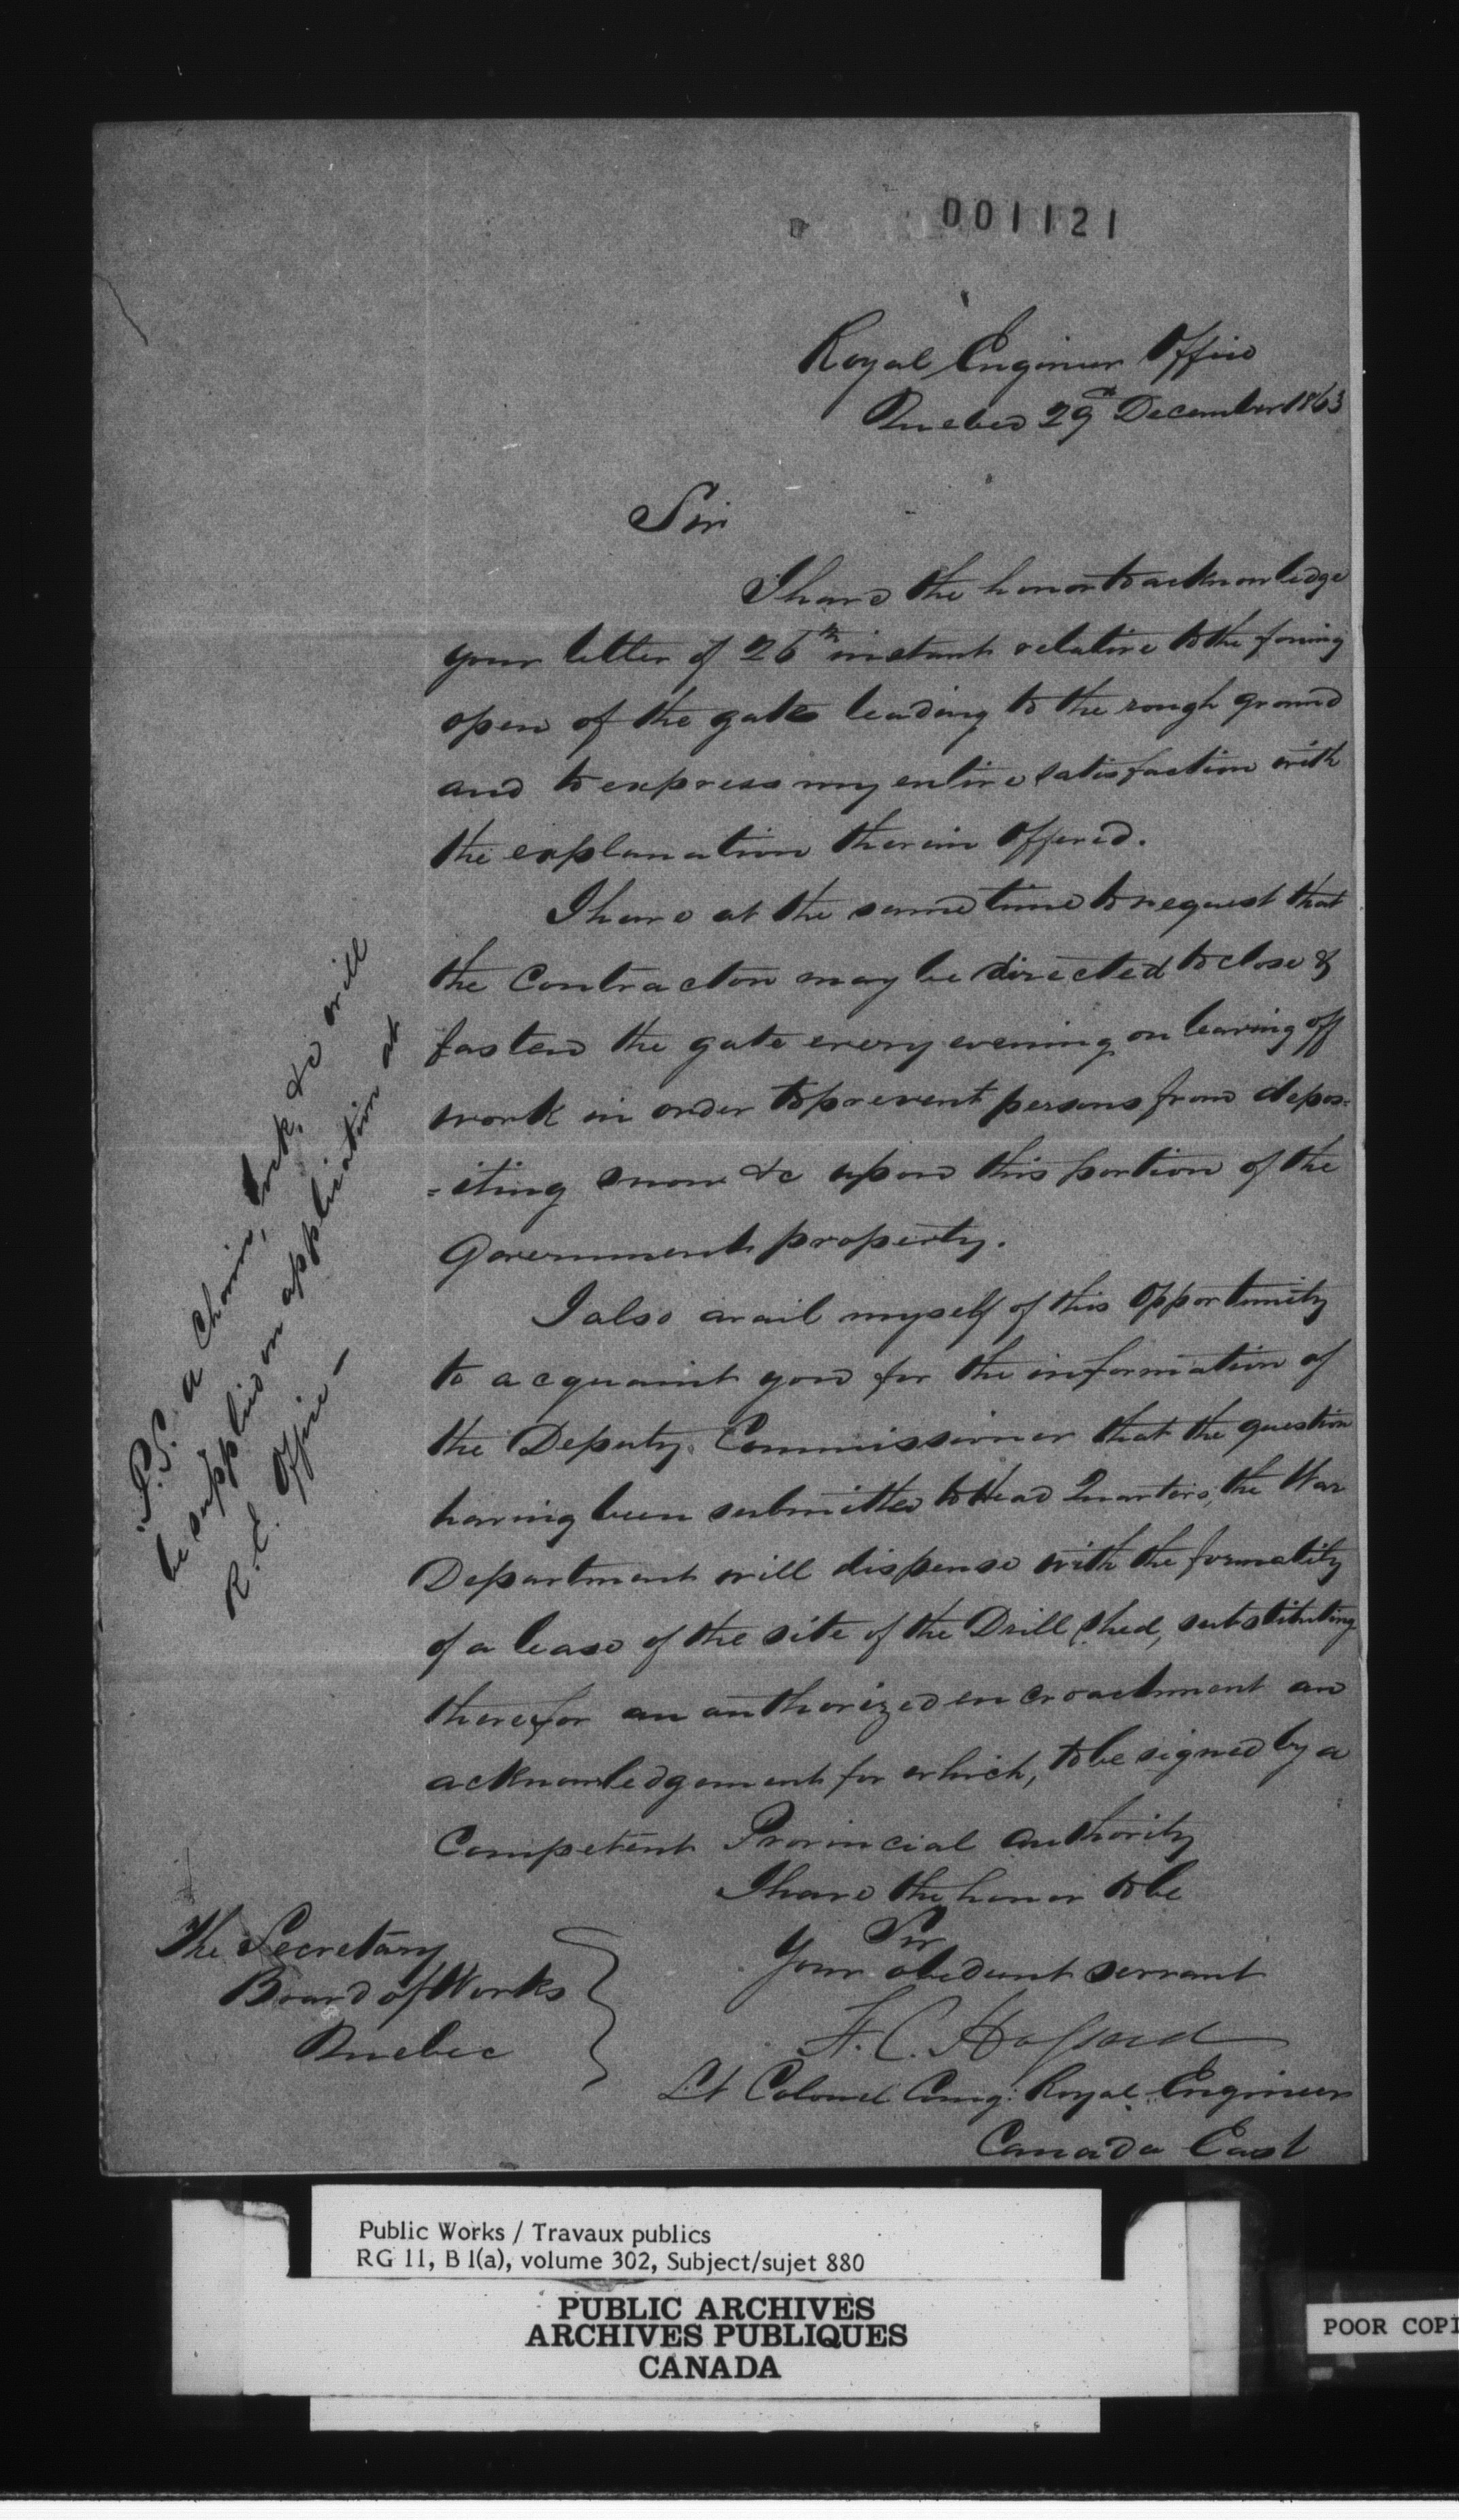 001121
Royal Engineer Office
Quebec 29th December 1863
Sir
I have the honor to acknowledge
your letter of 26th instant relative to the forcing
open of the gate leading to the rough ground
and to express my entire satisfaction with
the explanation therein offered.
I have at the same time to request that
the Contractor may be directed to close &
fasten the gate every evening on leaving off
work in order to prevent persons from depos=
=iting snow &c upon this portion of the
Government property.
I also avail myself of this opportunity
to acquaint you for the information of
the Deputy Commissioner that the question
having been submitted to Head Quarters, the War
Department will dispense with the formality
of a lease of the site of the Drill shed, substituting
therefor an authorized encroachment an
acknowledgement for which, to be signed by a
Competent Provincial authority
I have the honor to be
Sir
Your obedient servant
F. C. Hassard
Lt Colonel Comg: Royal Engineer
Canada East
The Secretary
Board of Works
Quebec
P.S. a chain, lock, &c will
be supplied on application at
R.E. Office –
Public Works / Travaux publics
RG 11, B 1(a), volume 302, Subject/sujet 880
PUBLIC ARCHIVES
ARCHIVES PUBLIQUES
CANADA
POOR COPI